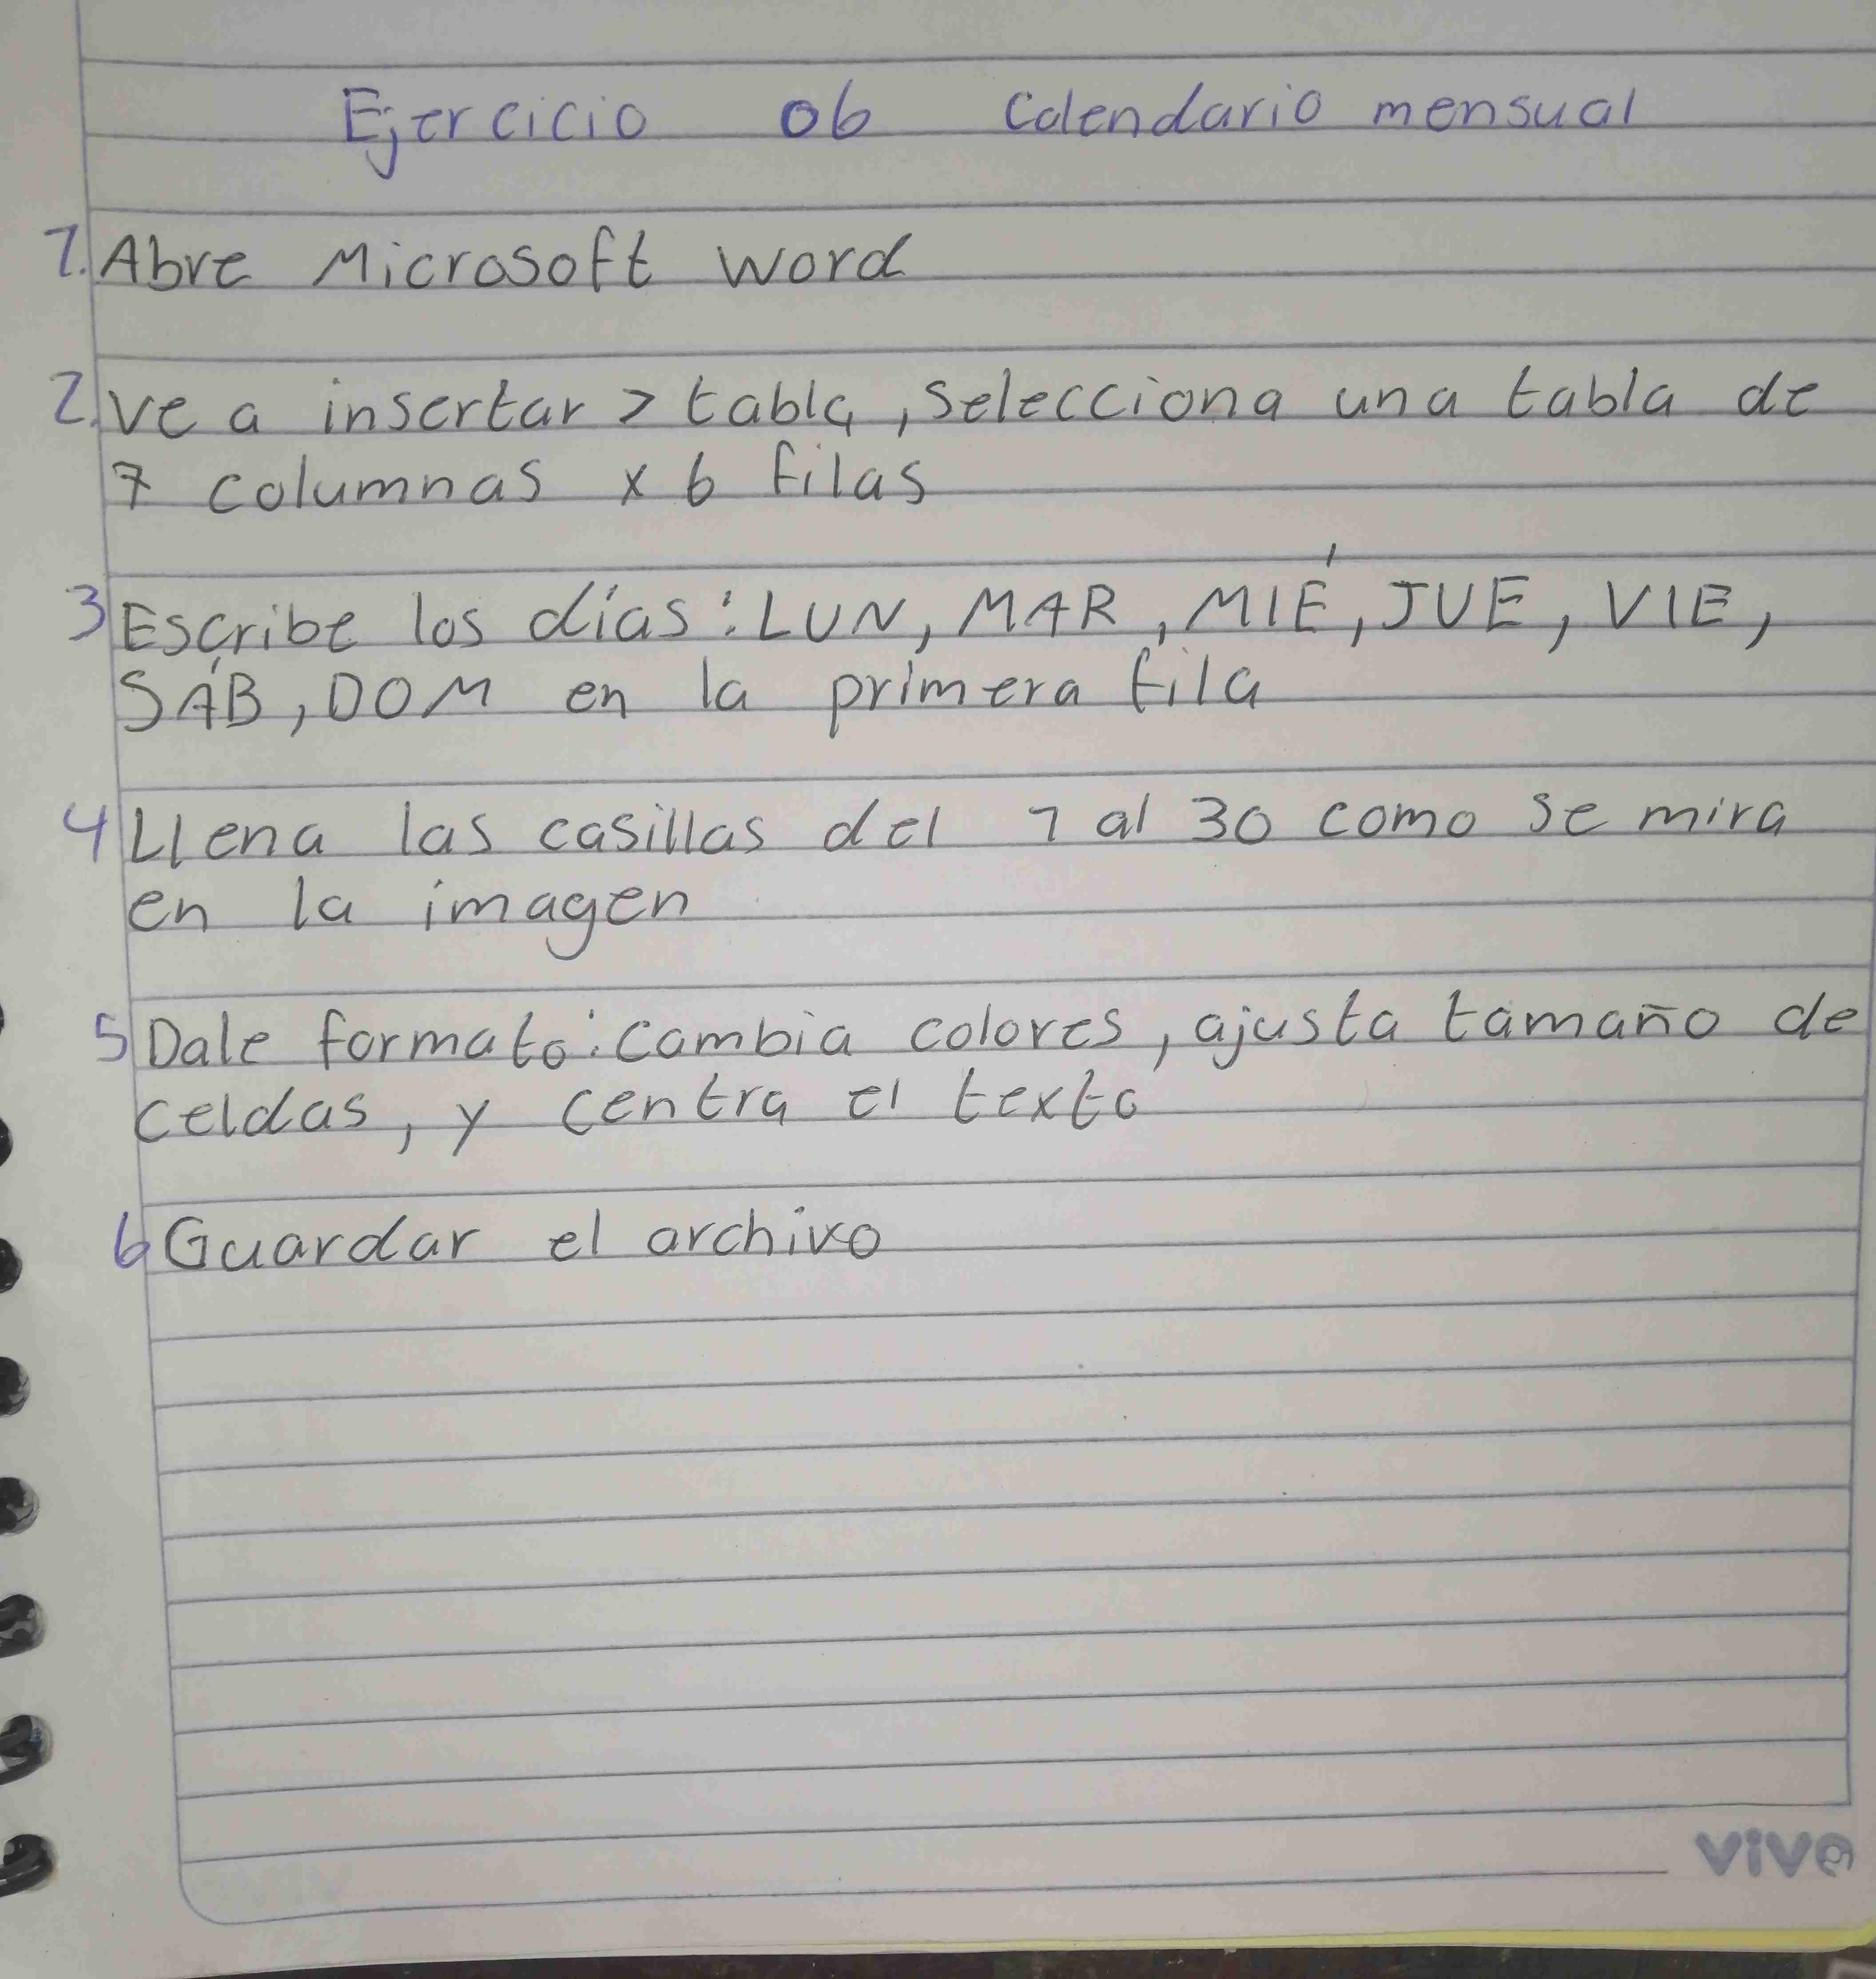 Ejercicio 06 Calendario mensual
1. Abre Microsoft word
2. ve a insertar > tabla, selecciona una tabla de
7 columnas x 6 filas
3 Escribe los días: LUN, MAR, MIÉ, JUE, VIE,
SÁB, DOM en la primera fila
4 Llena las casillas del 1 al 30 como se mira
en la imagen
5 Dale formato: cambia colores, ajusta tamaño de
celdas, y centra el texto
6 Guardar el archivo
vive